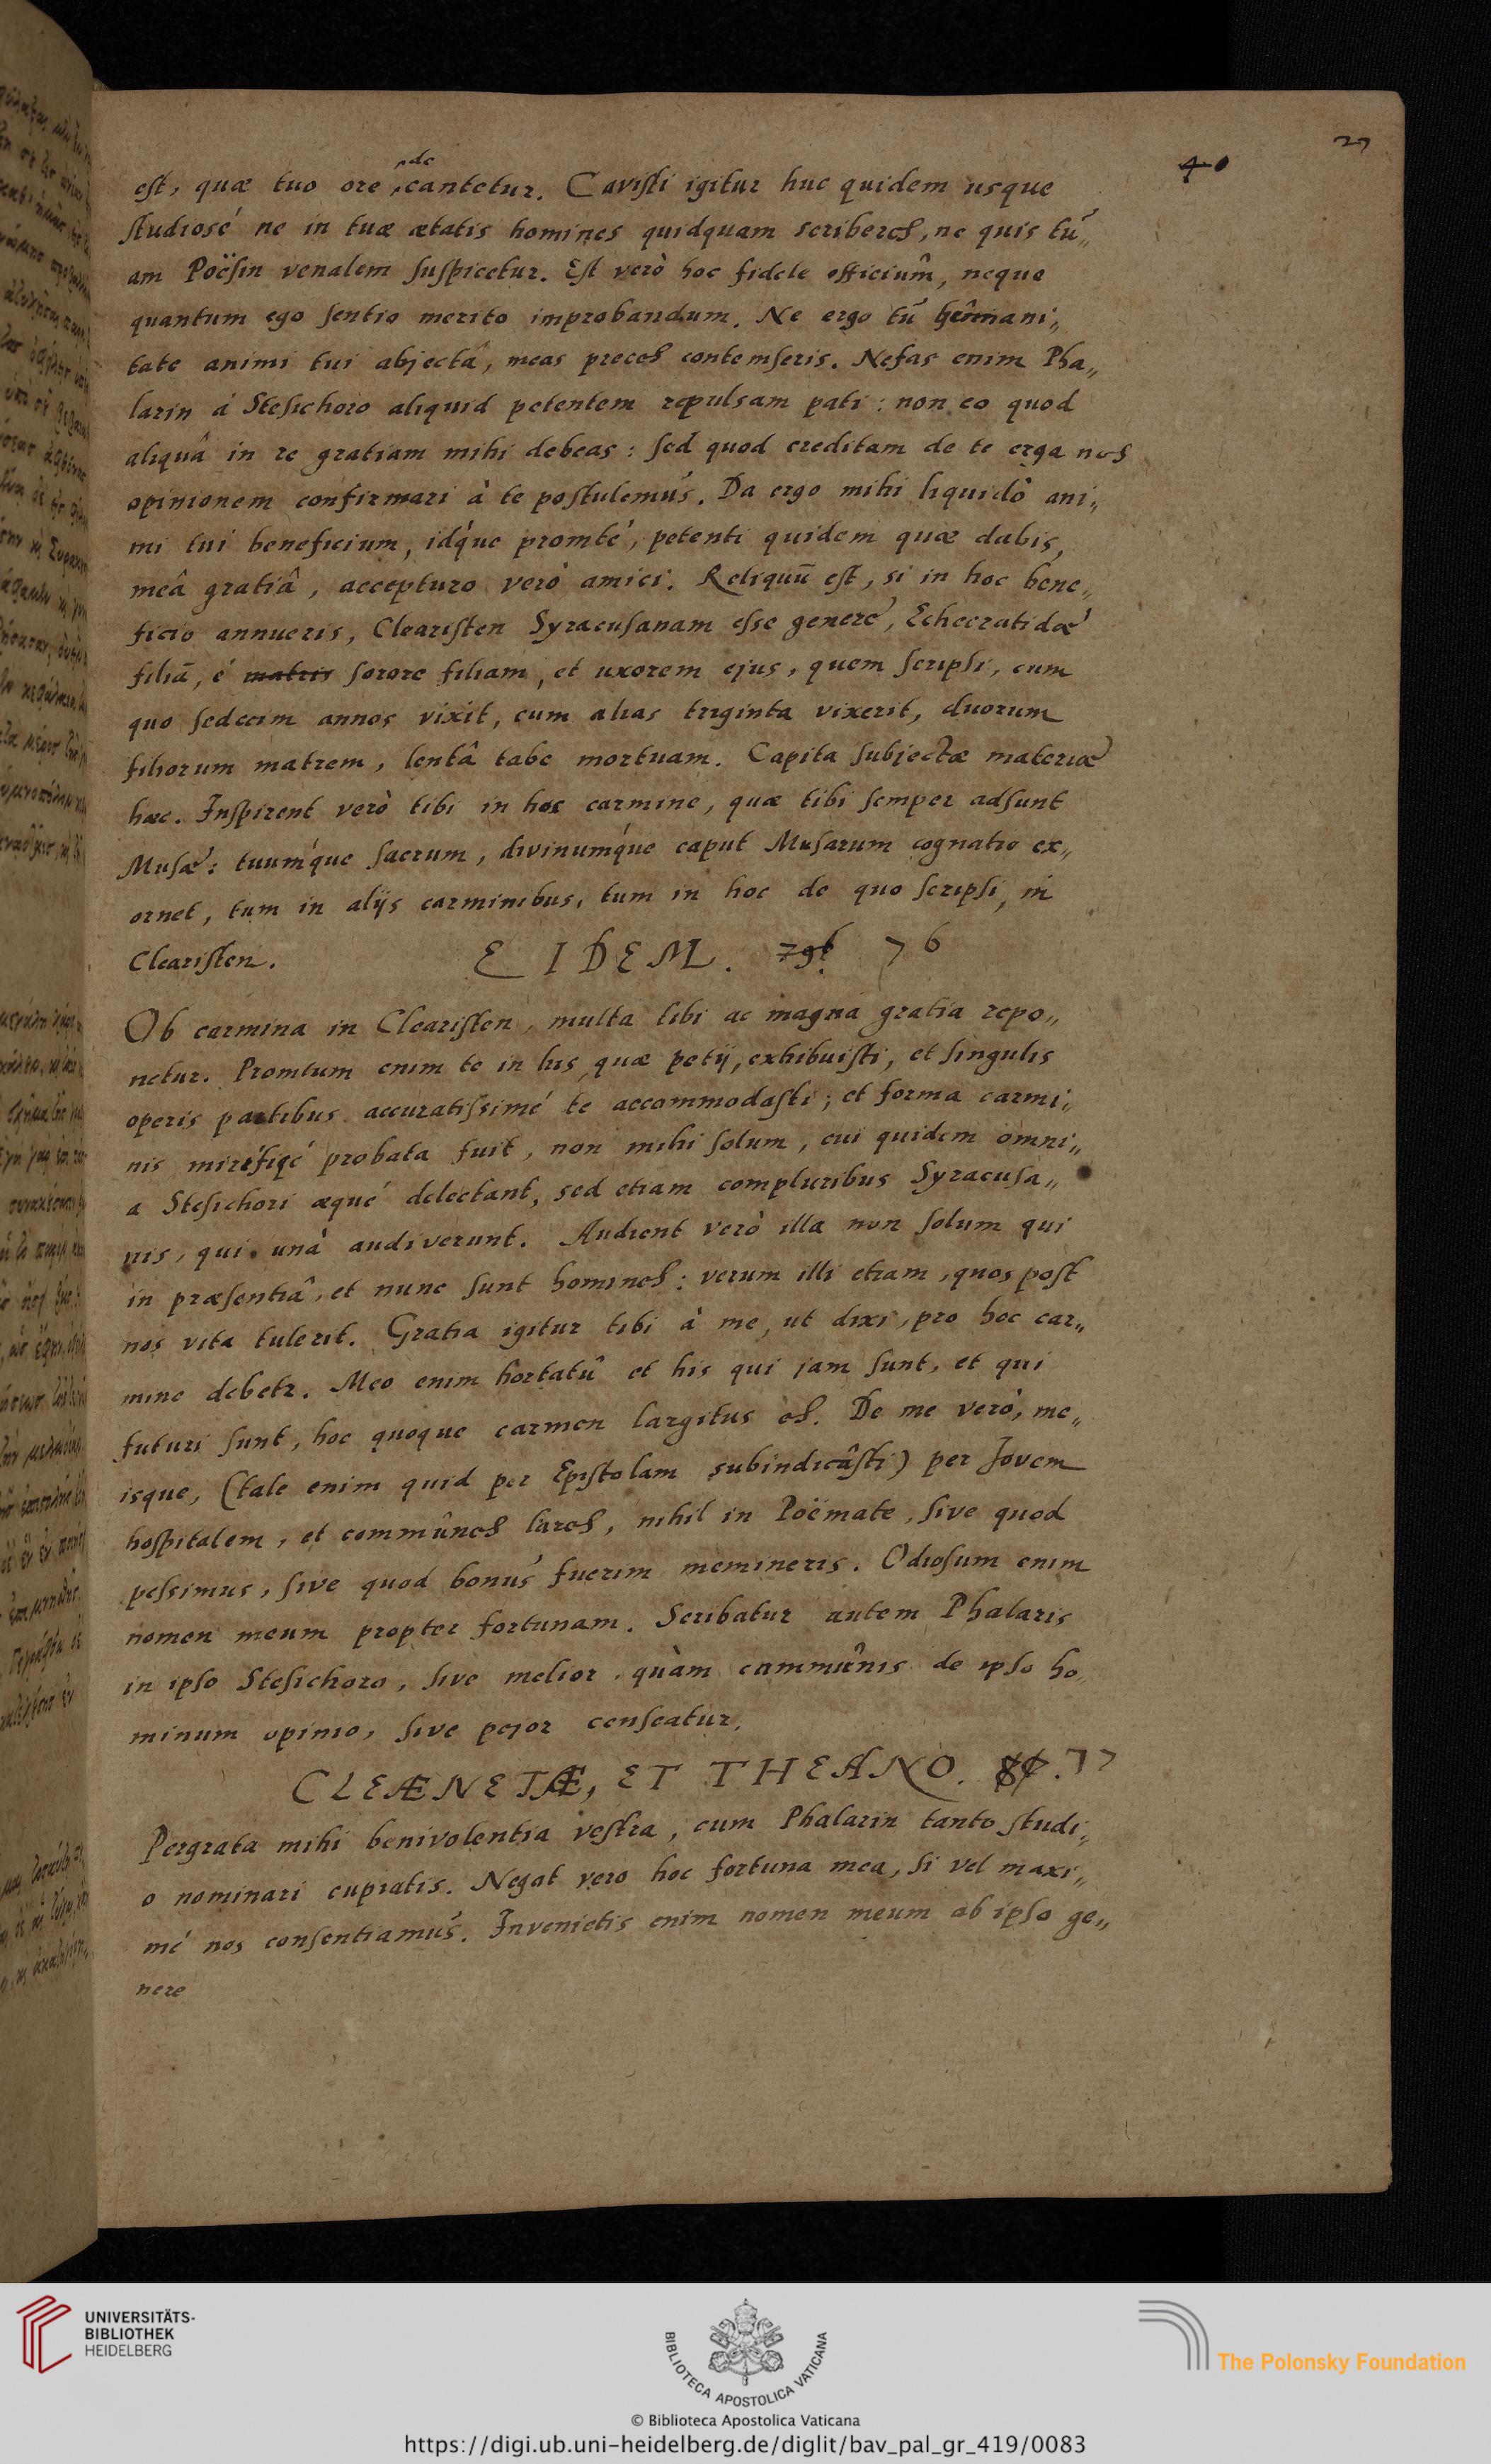 27
40
de
est, quæ tuo ore cantetur. Cavisti igitur huc quidem usque
studiosé ne in tuæ ætatis homines quidquam scriberes, ne quis tu„
am Poësin venalem suspicetur. Est verò hoc fidele officium, neque
quantum ego sentio merito improbandum. Ne ergo tu humani„
tate animi tui abjectâ, meas preces contemseris. Nefas enim Pha„
larin á Stesichoro aliquid petentem repulsam pati: non eo quod
aliquâ in re gratiam mihi debeas: sed quod creditam de te erga nos
opinionem confirmari à te postulemus. Da ergo mihi liquidò ani„
mi tui beneficium, idq́ue promté, petenti quidem quæ dabis,
meâ gratiâ, accepturo verò amici. Reliquū est, si in hoc bene„
ficio annueris, Clearisten Syracusanam esse genere, Echecratidæ
filiā, é matris sorore filiam, et uxorem ejus, quem scripsi, cum
quo sedecim annos vixit, cum alias triginta vixerit, duorum
filiorum matrem, lentâ tabe mortuam. Capita subjectæ materiæ
hæc. Inspirent verò tibi in hoc carmine, quæ tibi semper adsunt
Musæ: tuumq́ue sacrum, divinumq́ue caput Musarum cognatio ex„
ornet, tum in alijs carminibus, tum in hoc de quo scripsi, in
Clearisten. EIDEM. 79. 76
Ob carmina in Clearisten, multa tibi ac magna gratia repo„
netur. Promtum enim te in his, quæ petij, exhibuisti, et singulis
operis partibus accuratissimé te accommodasti; et forma carmi„
nis mirificé probata fuit, non mihi solum, cui quidem omni„
a Stesichori æqué delectant, sed etiam compluribus Syracusa„
nis, qui unà audiverunt. Audient verò illa non solum qui
in præsentiâ, et nunc sunt homines: verum illi etiam, quos post
nos vita tulerit. Gratia igitur tibi à me, ut dixi, pro hoc car„
mine debetr. Meo enim hortatû et his qui jam sunt, et qui
futuri sunt, hoc quoque carmen largitus es. De me verò, me„
isque, (tale enim quid per Epistolam subindicâsti) per Jovem
hospitalem, et commûnes lares, nihil in Poëmate, sive quod
pessimus, sive quod bonus fuerim memineris. Odiosum enim
nomen meum propter fortunam. Scribatur autem Phalaris
in ipso Stesichoro, sive melior, quàm commûnis de ipso ho„
minum opinio, sive pejor censeatur.
CLEÆNETÆ, ET THEANO. 77
Pergrata mihi benivolentia vestra, cum Phalarin tanto studi„
o nominari cupiatis. Negat vero hoc fortuna mea, si vel maxi„
mé nos consentiamus. Invenietis enim nomen meum ab ipso ge„
nere
UNIVERSITÄTS-
BIBLIOTHEK
HEIDELBERG
BIBLIOTECA APOSTOLICA VATICANA
The Polonsky Foundation
© Biblioteca Apostolica Vaticana
https://digi.ub.uni-heidelberg.de/diglit/bav_pal_gr_419/0083